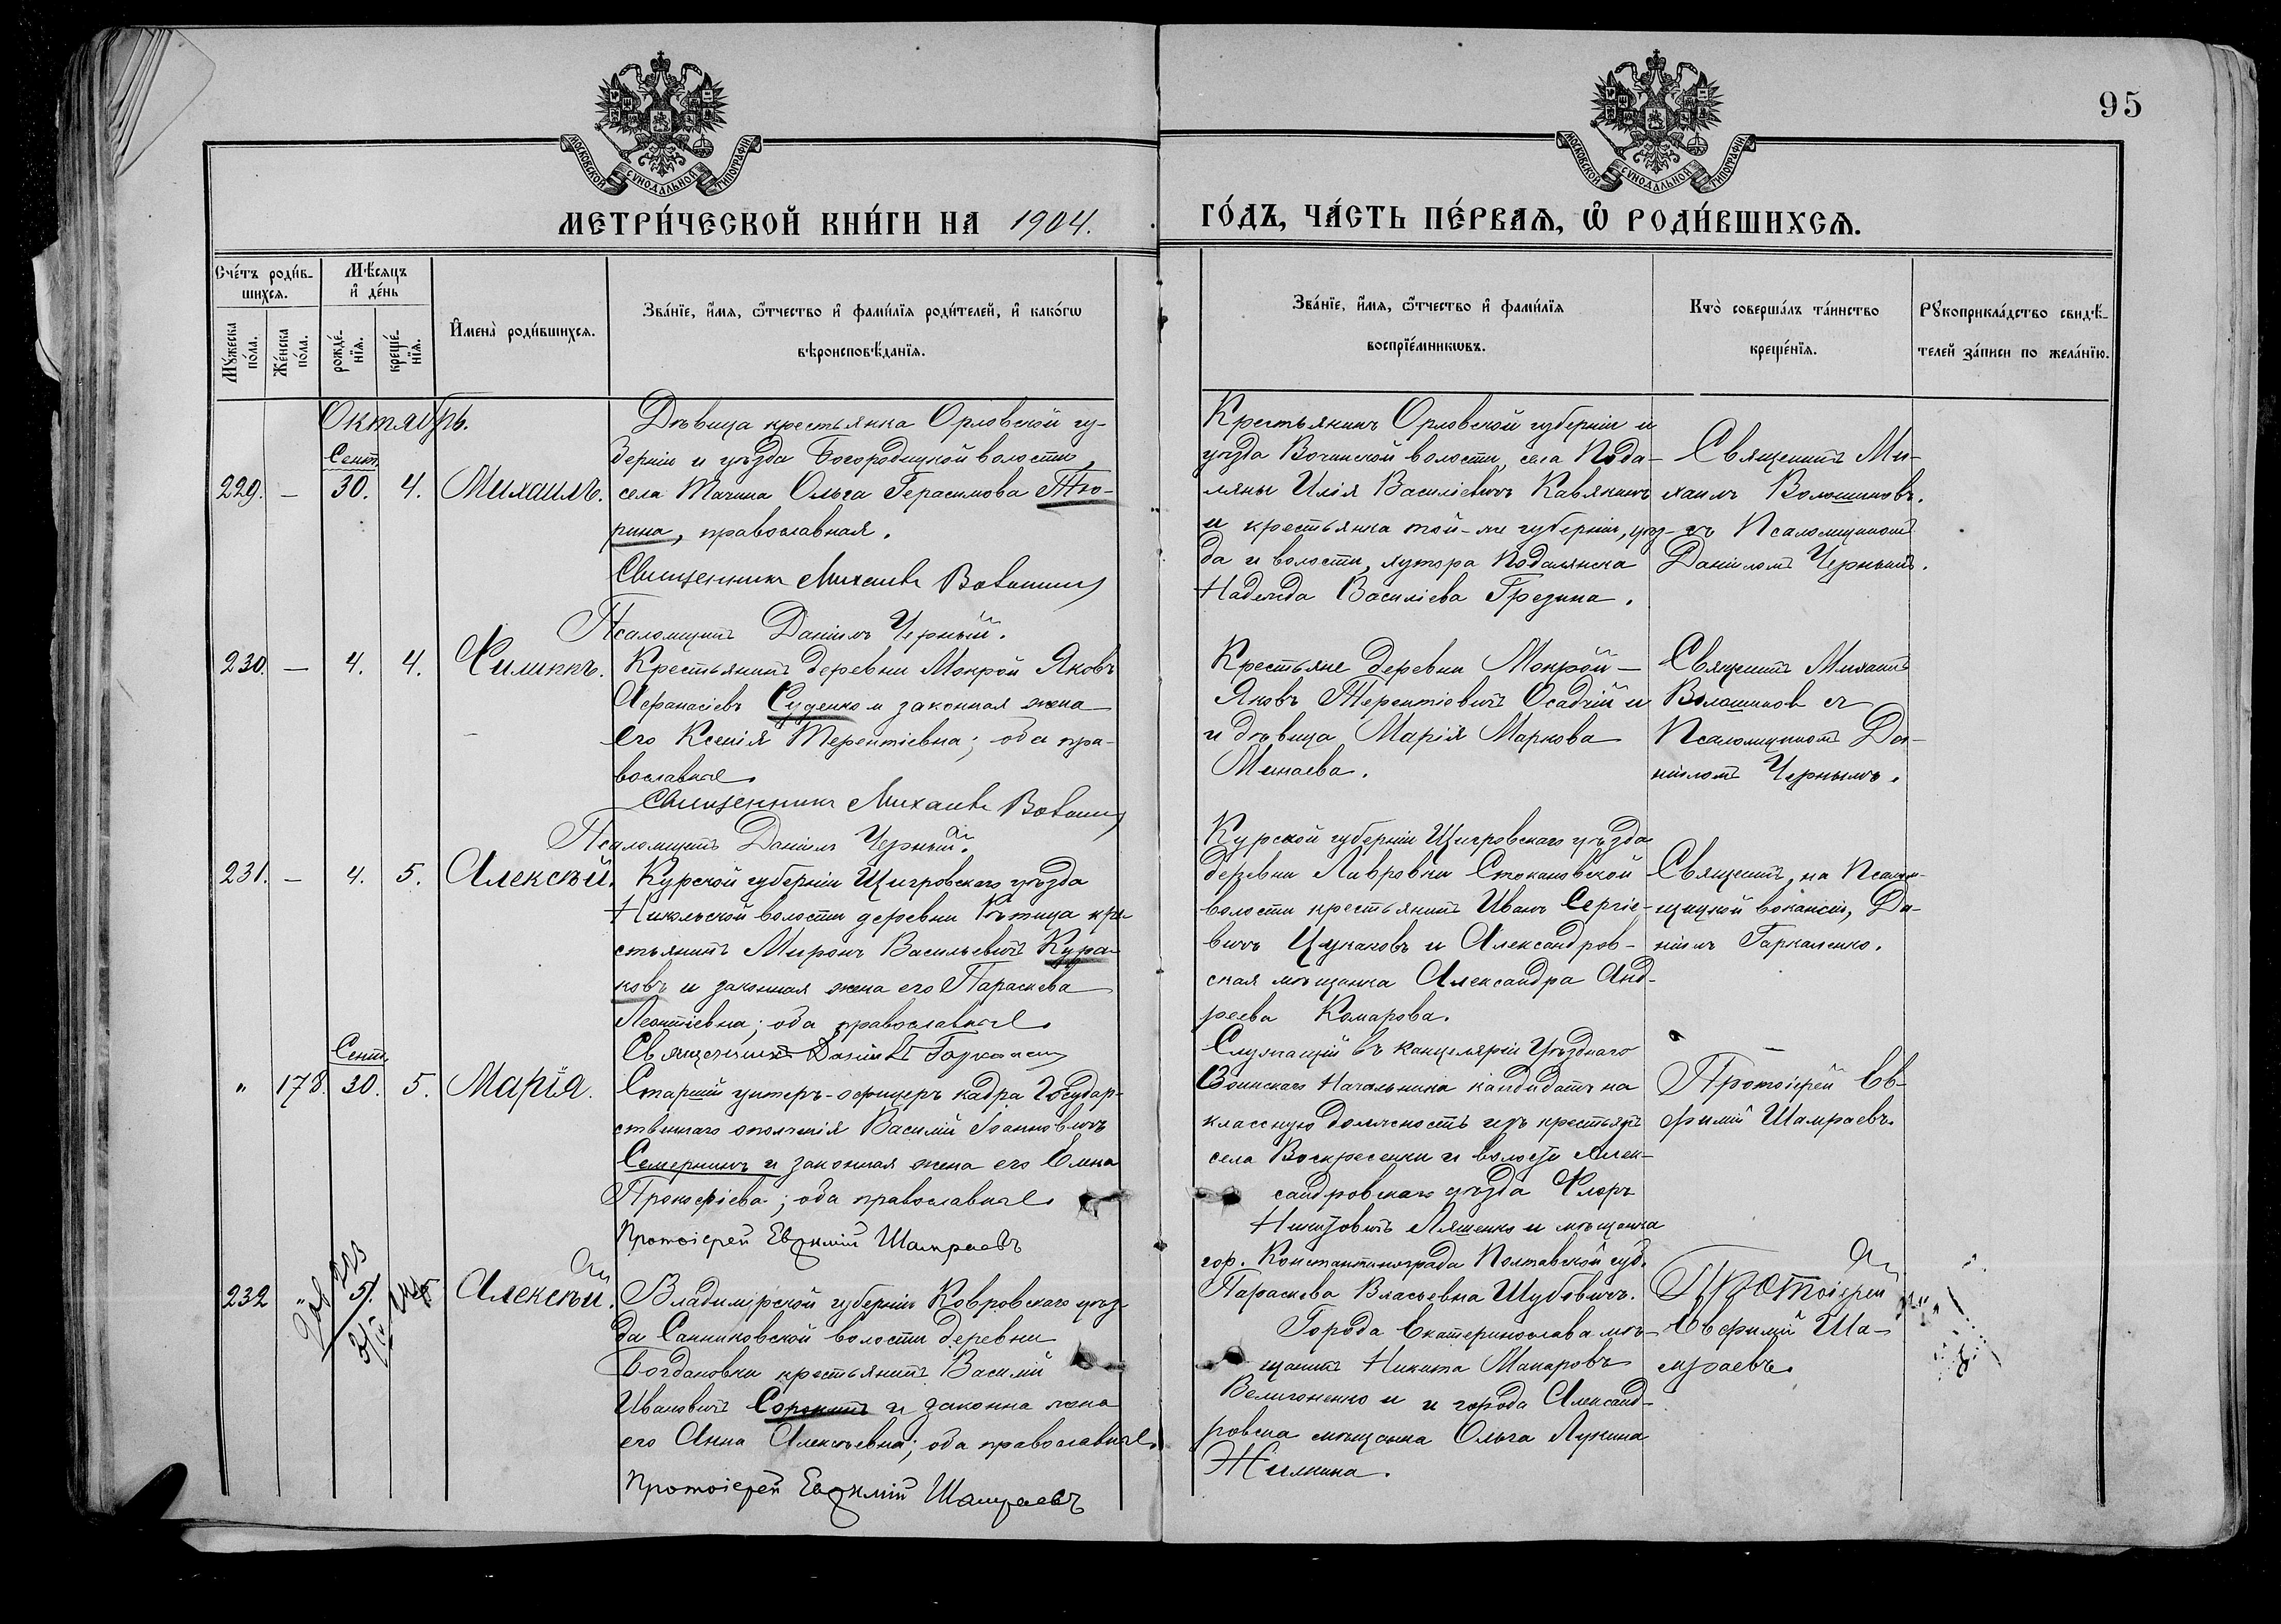 95
МОСКОВСКОЙ СѴНОДАЛЬНОЙ ТИПОГРАФІИ
МОСКОВСКОЙ СѴНОДАЛЬНОЙ ТИПОГРАФІИ
МЕТРИ́ЧЕСКОЙ КНИ́ГИ НА 1904.
ГО́ДЪ, ЧА́СТЬ ПЕ́РВАѦ, Ѡ҆ РОДИ́ВШИХСѦ.
Сче́тъ роди́в-
шихсѧ.
Мѣ́сѧцъ
и҆ де́нь
Мꙋ́жеска
по́ла.
Же́нска
по́ла.
рожде́-
нїѧ.
креще́-
нїѧ.
И҆мена̀ роди́вшихсѧ.
Зва́нїе, и҆́мѧ, ѻ҆́тчество и҆ фами́лїѧ роди́телей, и҆ како́гѡ
вѣроисповѣ́данїѧ.
Зва́нїе, и҆́мѧ, ѻ҆́тчество и҆ фами́лїѧ
воспрїе́мникѡвъ.
Кто̀ соверша́лъ та́инство
креще́нїѧ.
Рꙋкоприкла́дство свидѣ́-
телей за́писи по жела́нїю.
Октябрь.
Сент.
229. — 30. 4. Михаилъ.
Дѣвица крестьянка Орловской гу-
берніи и уѣзда Богородицкой волости,
села Тагина Ольга Герасимова Тю-
рина, православная.
Священникъ Михаилъ Волошинъ
Псаломщикъ Даніилъ Черный.
Крестьянинъ Орловской губерніи и
уѣзда Волости, села Пода-
ляны Илія Василіевичъ Кавякинъ
и крестьянка той-же губерніи, уѣз-
да и волости, хутора Подалянска
Надежда Василіева Грезина.
Священникъ Ми-
хаилъ Волошиновъ.
съ Псаломщикомъ
Даніиломъ Чернымъ.
230. — 4. 4. Филиппъ.
Крестьянинъ деревни Мокрой Яковъ
Афанасіевъ Суденко и законная жена
его Ксенія Терентіевна; оба пра-
вославные.
Священникъ Михаилъ
Псаломщикъ Даніилъ Черный.
Крестьяне деревни Мокрой —
Яковъ Терентіовичъ Осадчій и
и дѣвица Марія Маркова
Минаева.
Священникъ Михаилъ
Волошинов съ
Псаломщикомъ Да-
ніиломъ Чернымъ.
231. — 4. 5. Алексѣй.
Курской губерніи Щигровскаго уѣзда
Никольской волости деревни кре-
стьянинъ Миронъ Васильевичъ Кура-
ковъ и законная жена его Параскева
Леонтіевна; оба православные.
Священникъ Даніилъ
Курской губерніи Щигровскаго уѣзда
деревни Лавровки Стакановской
волости крестьянинъ Иванъ Сергіе-
вичъ Цукановъ и Александров-
ская мѣщанка Александра Анд-
реева Комарова.
Священникъ, на Псалом-
щицкой вакансіи, Да-
ніилъ Гаркаленко.
Сент.
" 178. 30. 5. Марія.
Старшій унтеръ-офицеръ кадра Государ-
ственнаго ополченія Василій Іоанновичъ
Семернинъ и законная жена его Елена
Прокофіева; оба православные.
Протоіерей Евѳимій Шамраевъ
Служащій въ канцеляріи Уѣзднаго
Воинскаго Начальника кандидатъ на
классную должность изъ крестьянъ
села Воскресенки и волости Алек-
сандровскаго уѣзда Флоръ
Никитовичъ Ляшенко и мѣщанка
гор. Константинограда Полтавской губ.
Параскева Власьевна Шубовичъ.
Протоіерей Ев-
фимій Шамраевъ.
232 " 5. Алексѣй.
Владимірской губерніи Ковровскаго уѣз-
да Санниковской волости деревни
Богдановки крестьянинъ Василій
Ивановичъ Сорокинъ и законна жена
его Анна Алексѣевна; оба православные.
Протоіерей Евѳимій Шамраевъ
Города Екатеринослава мѣ-
щанинъ Никита Макаровъ
Велигоненко и и города Александ-
ровска мѣщанка Ольга Лукина
Жилкина.
Протоіерей
Евфимій Ша-
мраевъ.